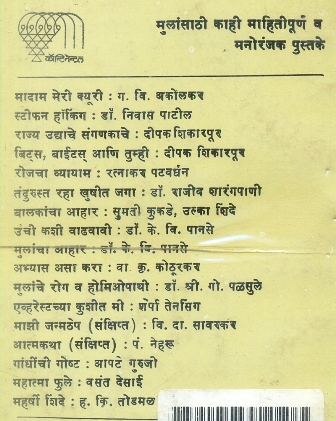 कॉन्टिनेन्टल
मुलांसाठी काही माहितीपूर्ण व
मनोरंजक पुस्तके
मादाम मेरी क्यूरी : ग. वि. अकोलकर
स्टीफन हॉकिंग : डॉ. निवास पाटील
राज्य उद्याचे संगणकाचे : दीपक शिकारपूर
बिट्स, बाईट्स आणि तुम्ही : दीपक शिकारपूर
रोजचा व्यायाम : रत्नाकर पटवर्धन
तंदुरुस्त रहा खुषीत जगा : डॉ. राजीव शारंगपाणी
बालकांचा आहार : सुमती कुकडे, उल्का शिंदे
उंची कशी वाढवावी : डॉ. के. वि. पानसे
मुलांचा आहार : डॉ. के. वि. पानसे
अभ्यास असा करा : वा. कृ. कोठूरकर
मुलांचे रोग व होमिओपाथी : डॉ. श्री. गो. पळसुले
एव्हरेस्टच्या कुशीत मी : शेर्पा तेनसिंग
माझी जन्मठेप (संक्षिप्त) : वि. दा. सावरकर
आत्मकथा (संक्षिप्त) : पं. नेहरू
गांधींची गोष्ट : आपटे गुरुजी
महात्मा फुले : वसंत देसाई
महर्षी शिंदे : ह. कि. तोडमल